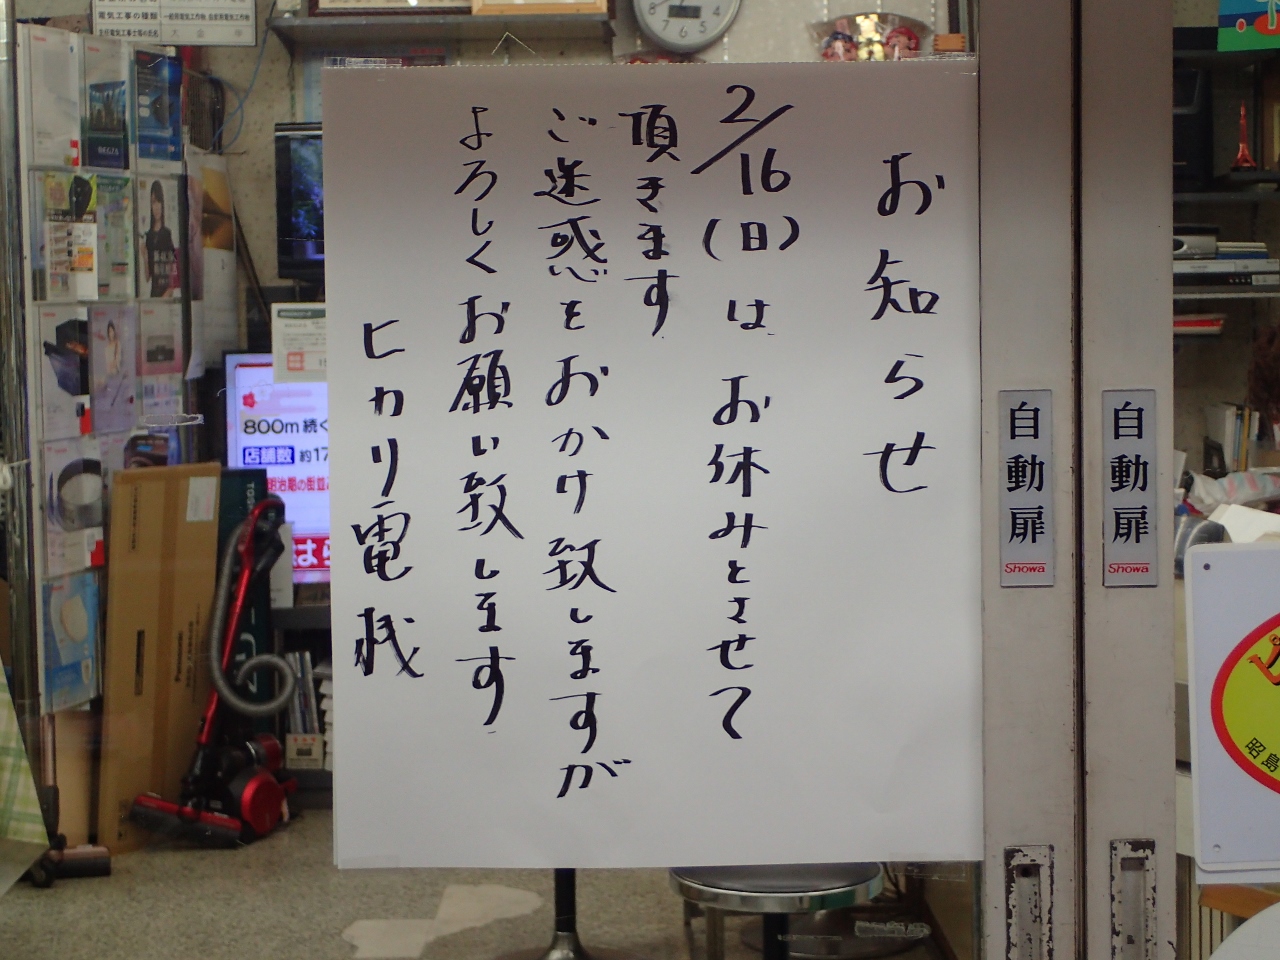 お知らせ
2/16(日)は お休みとさせて
頂きます
ご迷惑をおかけ致しますが
よろしくお願い致します
ヒカリ電機
自動扉
Showa
自動扉
Showa
電気工事の種類
800m 続く
店舗数 約17
明治期の街並
はら
TOSH
Panasonic
REGZA
昭島